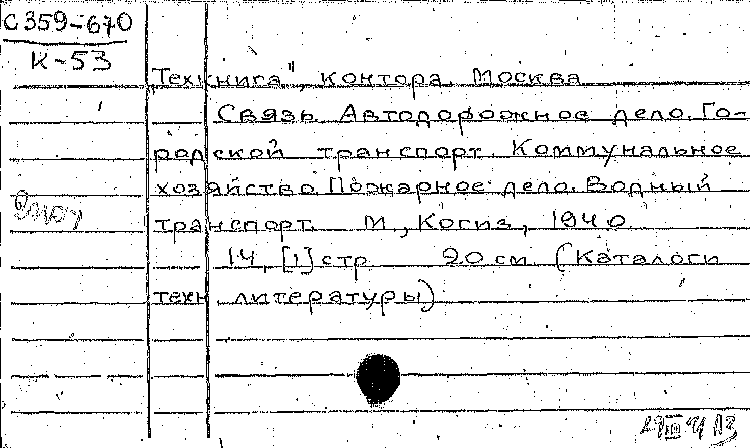 С359-670
К-53
Техкнига", контора. Москва
Связь. Автодорожное дело. Го-
родской транспорт. Коммунальное
хозяйство. Пожарное дело. Водный
транспорт. М., Когиз, 1940.
14, [1] стр. 20 см. (Каталоги
техн. литературы)